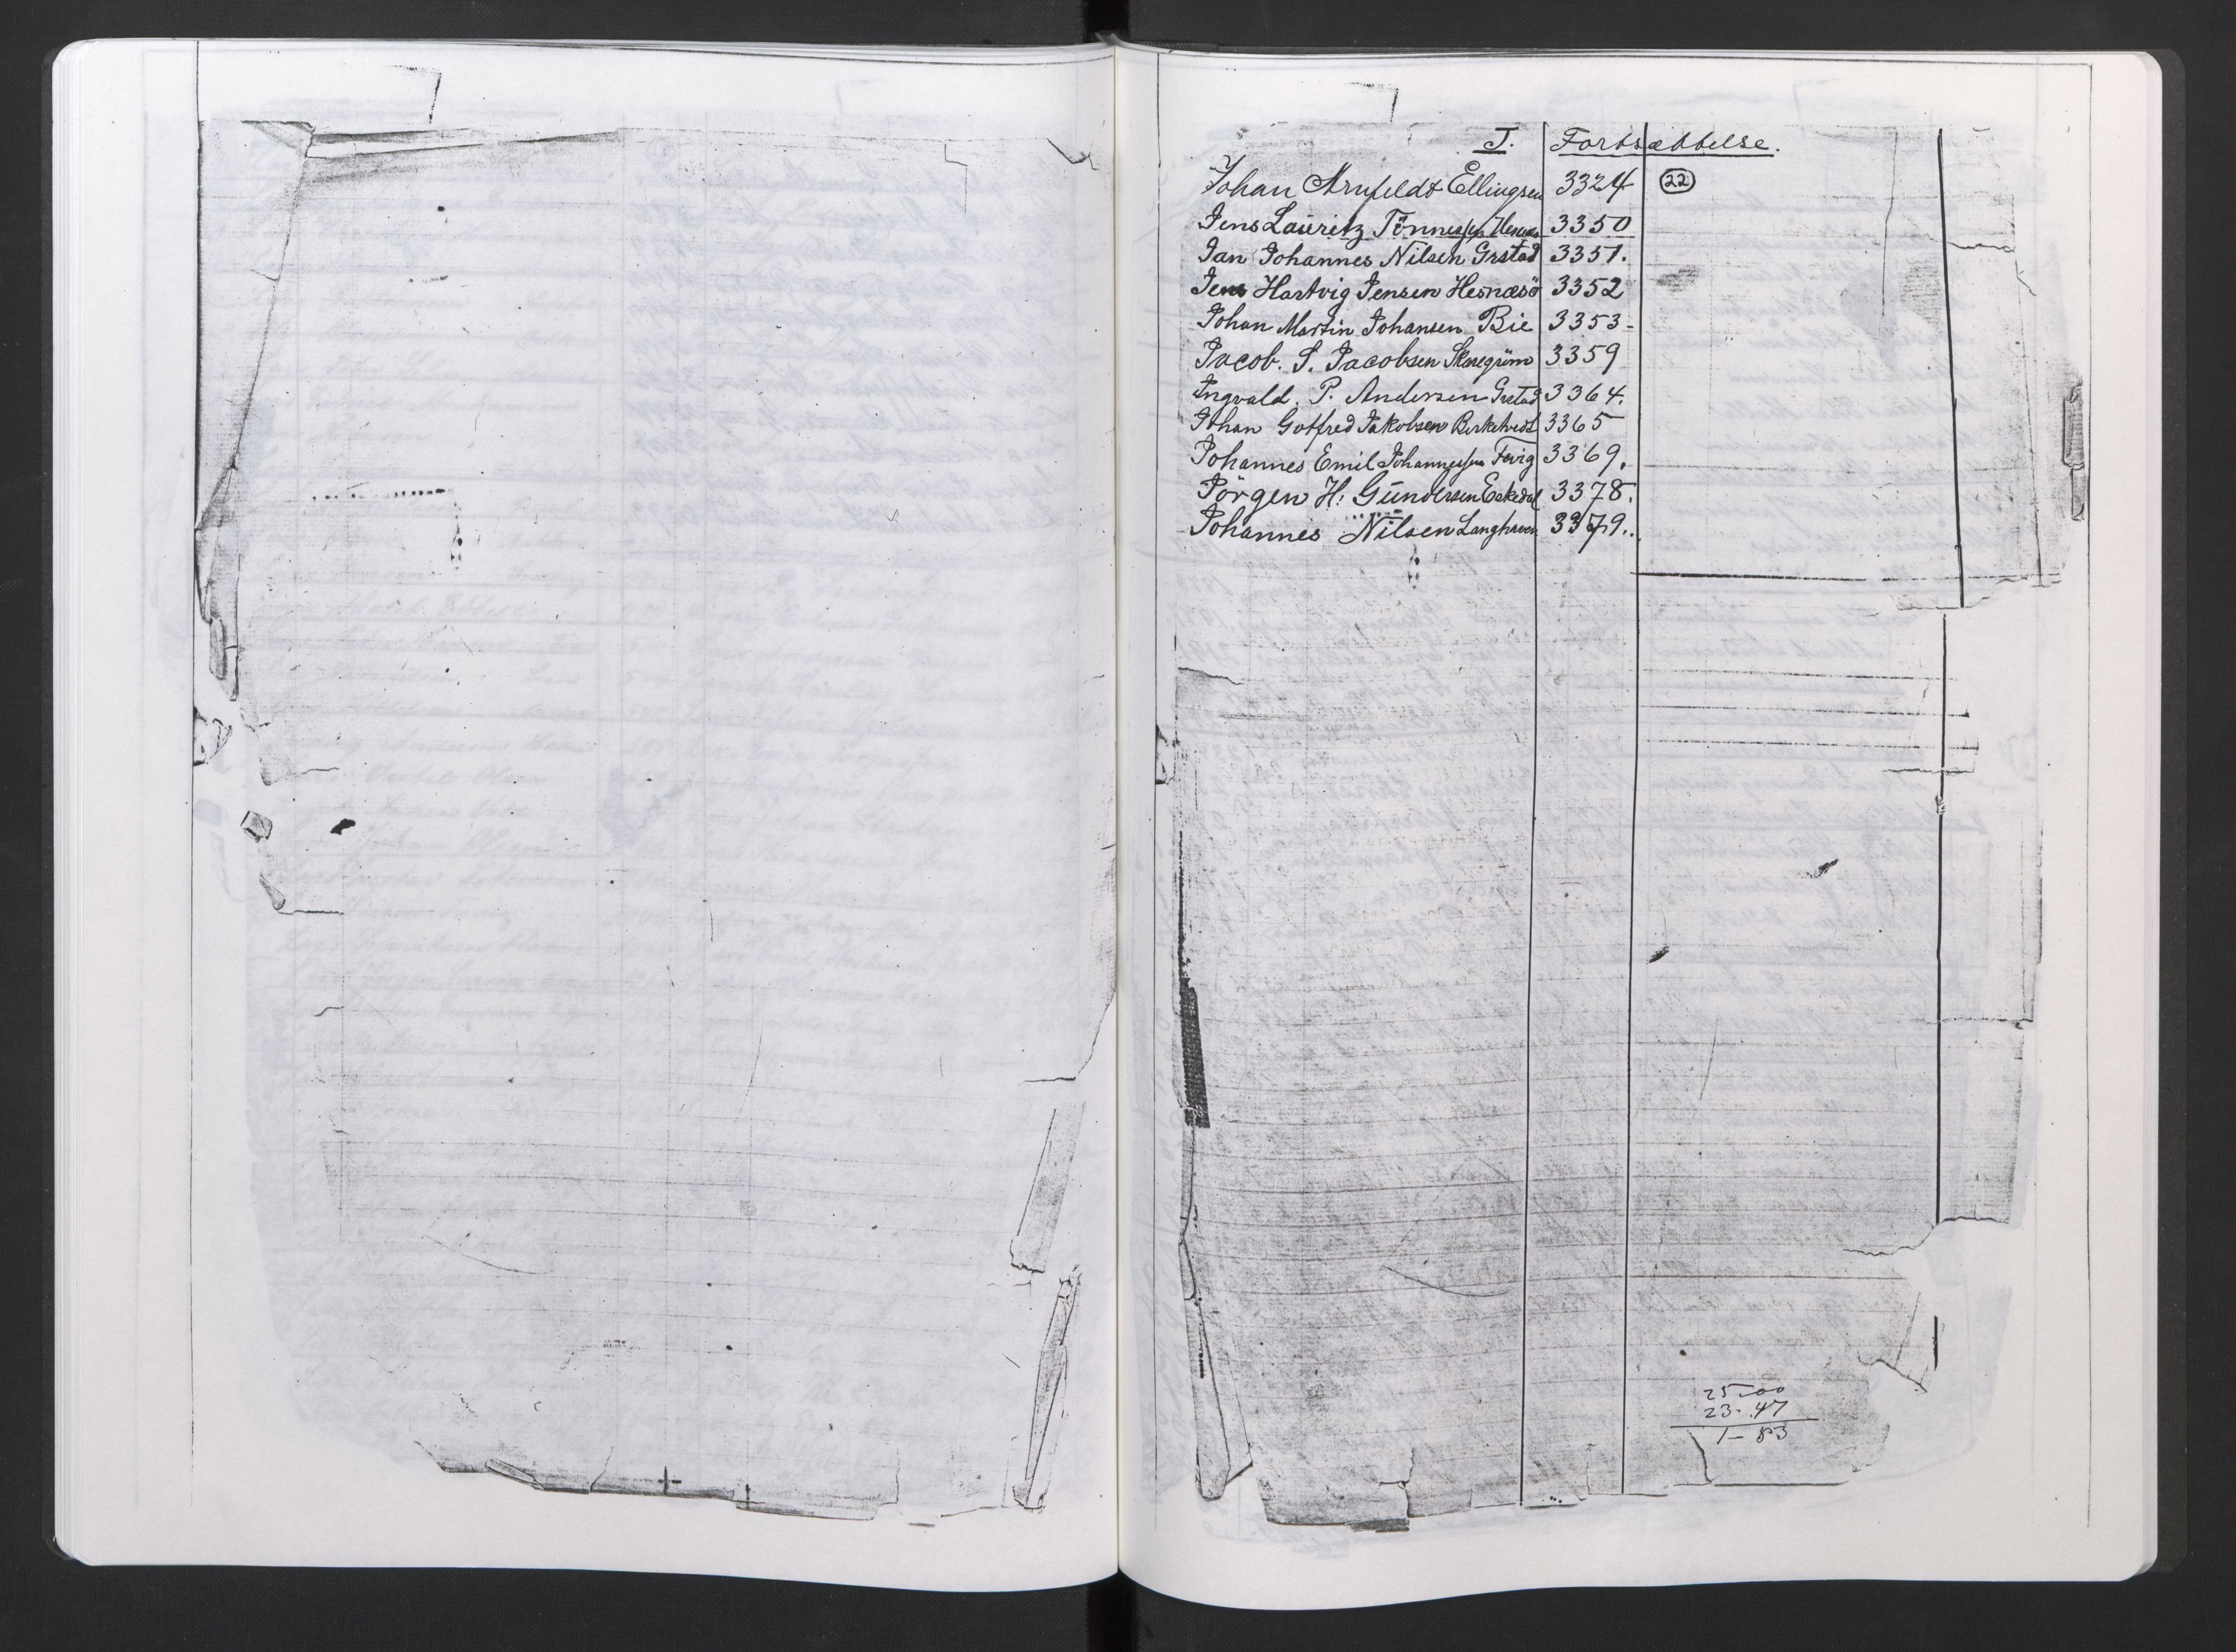 J. Fortsættelse.
Johan Arnfeldt Ellingsen 3324 22
Jens Lauritz Tönnessen 3350
Jan Johannes Nilsen Grstad 3351.
Jens Hartvig Jensen Hesnæsö 3352
Johan Martin Johansen Bie 3353-
Jacob. S. Jacobsen Skaregröm 3359
Ingvald. P. Andersen Grstad 3364.
Johan Gotfred Jakobsen Birketvedt 3365
Johannes Emil Johannessen Fevig 3369.
Jörgen H: Gundersen Eskedal 3378.
Johannes Nilsen Langhaven 3379..
25-00
23-47
1-53